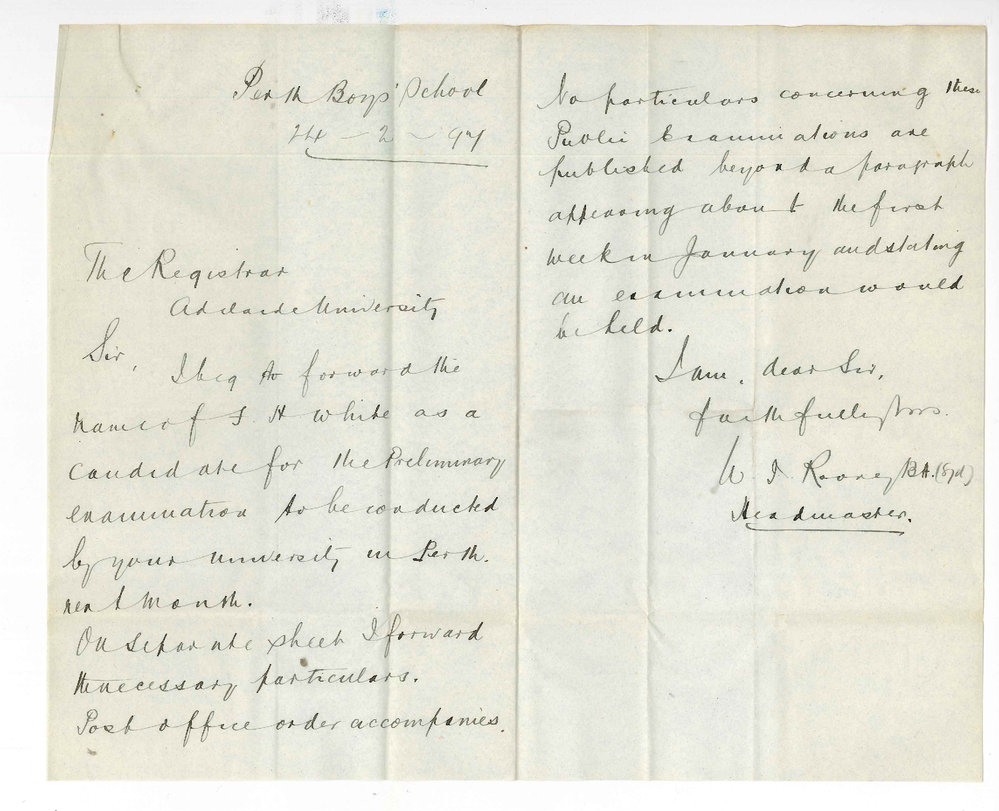 Perth Boys' School
24 - 2 - 97
The Registrar
Adelaide University
Sir,
I beg to forward the
name of F. H White as a
candidate for the Preliminary
examination to be conducted
by your university in Perth.
next month.
On separate sheet I forward
the necessary particulars.
Post office order accompanies.
No particulars concerning these
Public Examinations are
published beyond a paragraph
appearing about the first
week in January and stating
an examination would
be held.
I am, dear Sir,
faithfully yrs.
W J Rooney B.A. (Syd)
Headmaster.